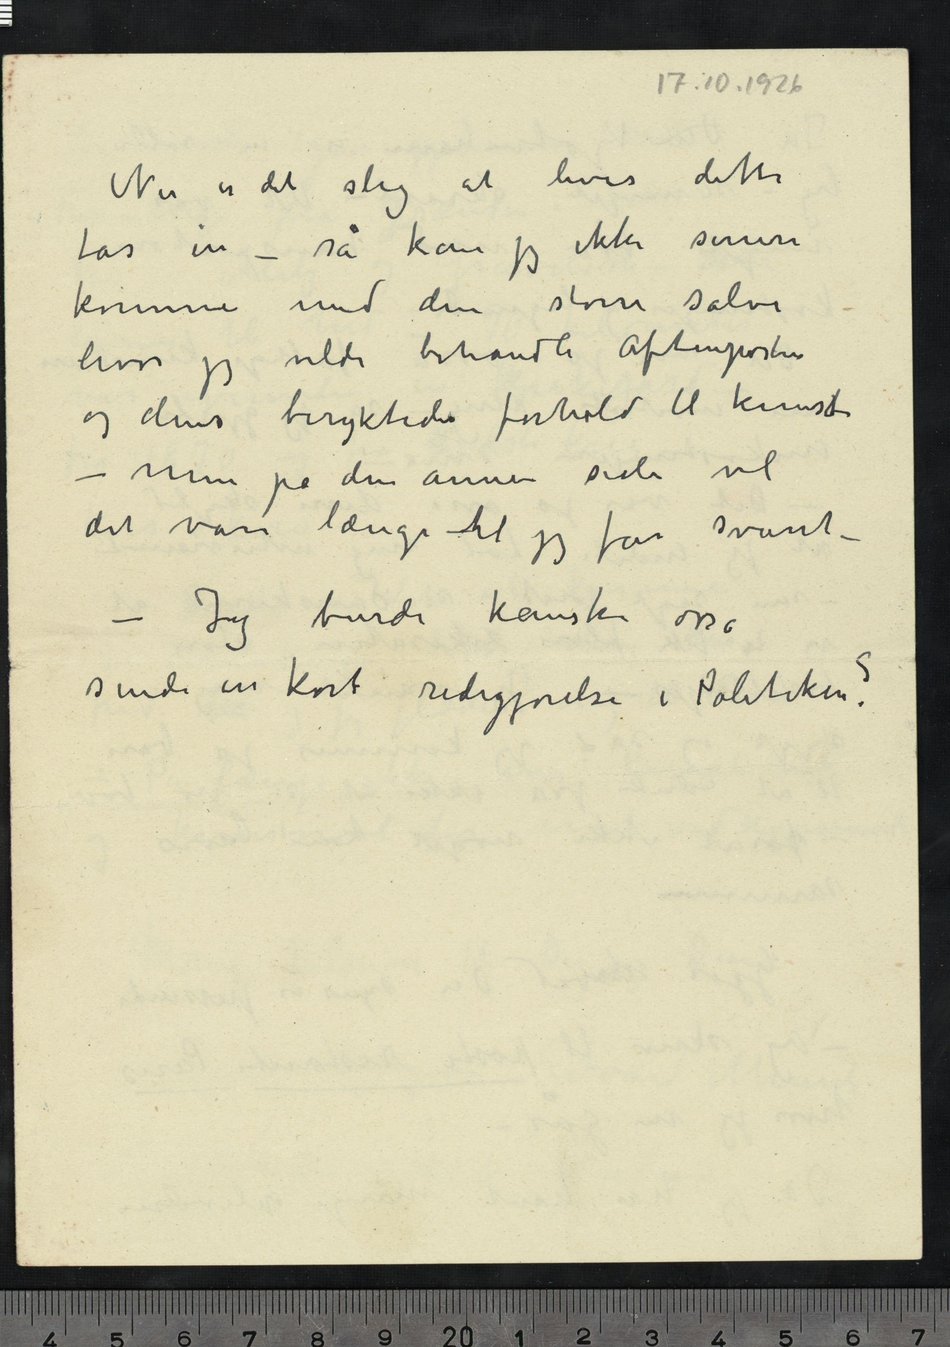 17.10.1926
Nu er det slig at hvis dette
tas in – så kan jeg ikke senere
komme med den større salve
hvor jeg vilde behandle Aftenposten
og dens beryktede forhold til kunst
– Men på den annen side vil
det vare længe til jeg får svart –
– Jeg burde kanske osså
sende en kort redegjørelse i Politiken?
4 5 6 7 8 9 20 1 2 3 4 5 6 7